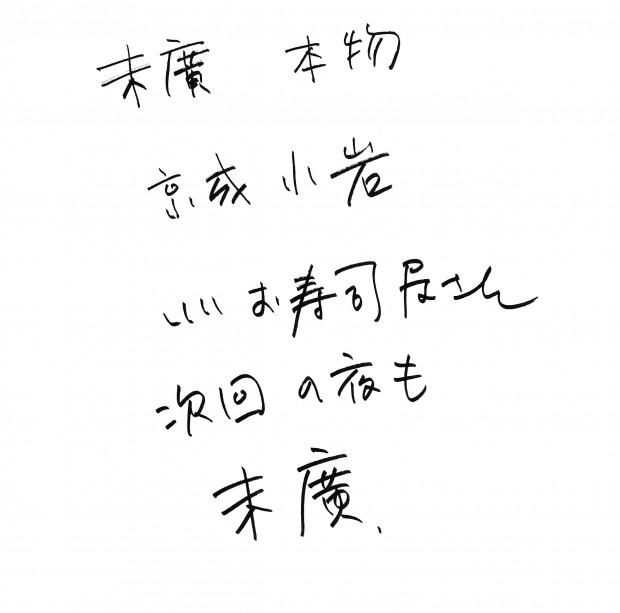 末廣 本物
京成小岩
いいお寿司屋さん
次回の夜も
末廣、